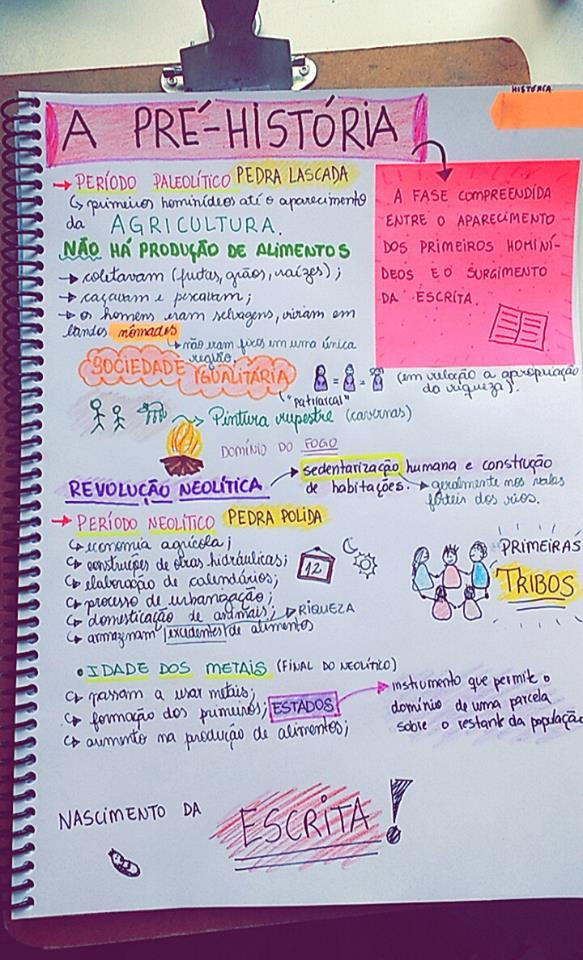 HISTÓRIA
A PRÉ-HISTÓRIA
→ PERÍODO PALEOLÍTICO PEDRA LASCADA
↳ primeiros hominídeos até o aparecimento
da AGRICULTURA.
NÃO HÁ PRODUÇÃO DE ALIMENTOS
→ coletavam (frutas, grãos, raízes);
→ caçavam e pescavam;
→ os homens eram selvagens, viviam em
bandos nômades
↳ não eram fixos em uma única
região.
A FASE COMPREENDIDA
ENTRE O APARECIMENTO
DOS PRIMEIROS HOMINÍ-
DEOS E O SURGIMENTO
DA ESCRITA.
SOCIEDADE
IGUALITÁRIA
= =
(em relação a apropriação
da riqueza).
"patriarcal"
Pintura rupestre (cavernas)
DOMÍNIO DO FOGO
REVOLUÇÃO NEOLÍTICA → sedentarização humana e construção
de habitações. → geralmente nos vales
férteis dos rios.
→ PERÍODO NEOLÍTICO PEDRA POLIDA
↳ economia agrícola;
↳ construções de obras hidráulicas;
↳ elaboração de calendários;
↳ processo de urbanização;
↳ domesticação de animais; → RIQUEZA
↳ armazenam excedentes de alimentos
12
PRIMEIRAS
TRIBOS
• IDADE DOS METAIS (FINAL DO NEOLÍTICO)
↳ passam a usar metais;
↳ formação dos primeiros; ESTADOS
↳ aumento na produção de alimentos;
instrumento que permite o
domínio de uma parcela
sobre o restante da população
NASCIMENTO DA ESCRITA!